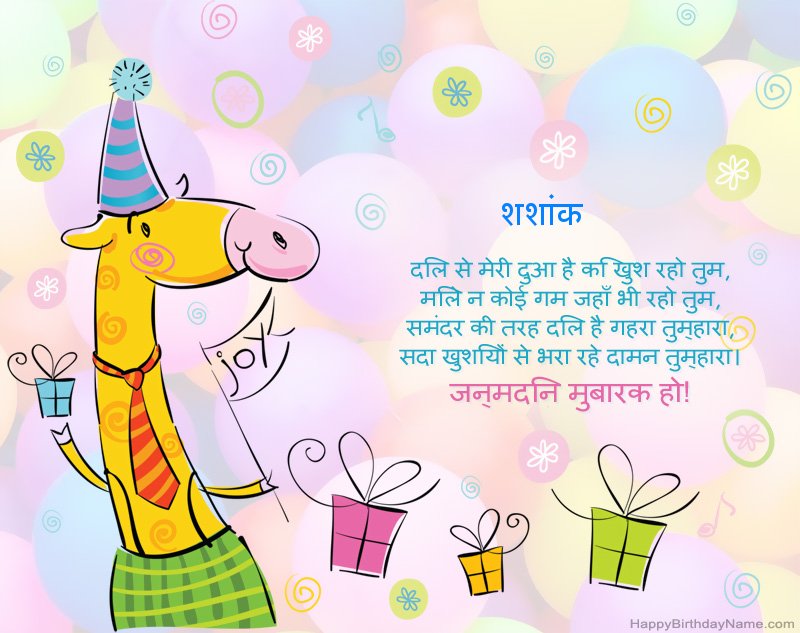 शशांक
दलि से मेरी दुआ है क िखुश रहो तुम,
मलिे न कोई गम जहाँ भी रहो तुम,
समंदर की तरह दलि है गहरा तुम्हारा,
सदा खुशयिों से भरा रहे दामन तुम्हारा।
जन्मदनि मुबारक हो!
joy
HappyBirthdayName.com